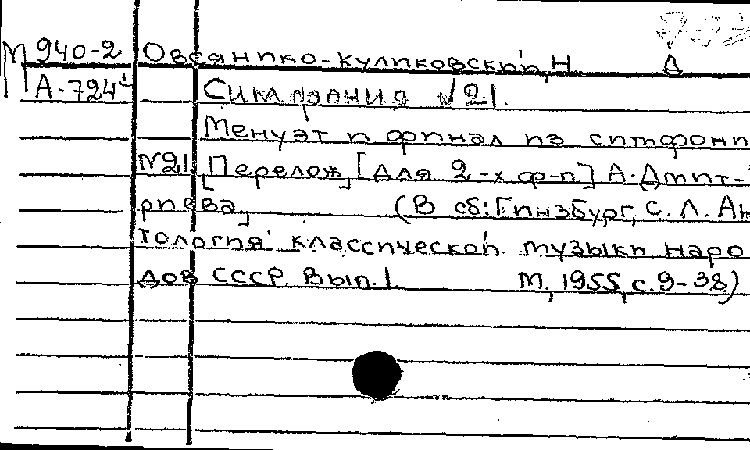 М 940-2 Овсянико-Куликовский, Н
А-724¹ Симфония №21. Д
Менуэт и финал из симфони
№21. [Перелож] [для 2-х ф-п] А. Дмит-
риева, (В сб: Гинзбург, С. Л. Ан
тология классической музыки наро
дов СССР. Вып. 1 М, 1955, с. 9-38)